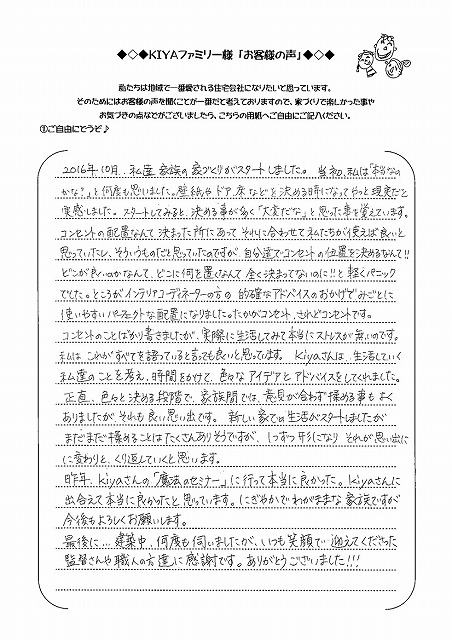 ◆◇◆KIYAファミリー様「お客様の声」◆◇◆
私たちは地域で一番愛される住宅会社になりたいと思っています。
そのためにはお客様の声を聞くことが一番だと考えておりますので、家づくりで楽しかった事や
お気づきの点などがございましたら、こちらの用紙へご自由にご記入ください。
①ご自由にどうぞ♪
2016年10月、私達家族の家づくりがスタートしました。当初、私は「本当なの
かな?」と何度も思いました。壁紙やドア、床などを決める時になってやっと現実だと
実感しました。スタートしてみると、決める事が多く「大変だな」と思った事を覚えています。
コンセントの配置なんて決まった所にあって、それに合わせて私たちが使えば良いと
思っていたし、そういうものだと思っていたのですが、自分達でコンセントの位置を決めるなんて!!
どこが良いのかなんて、どこに何を置くなんて全く決まってないのに!!と軽くパニック
でした。ところがインテリアコーディネーターの方の的確なアドバイスのおかげでみごとに
使いやすいパーフェクトな配置になりました。たかがコンセント、されどコンセントです。
コンセントのことばかり書きましたが、実際に生活してみて本当にストレスが無いのです。
私は、これがすべてを語っていると言っても良いと思っています。Kiyaさんは、生活していく
私達のことを考え、時間をかけて、色々なアイデアとアドバイスをしてくれました。
正直、色々と決める段階で、家族間では、意見が合わず揉める事もよく
ありましたが、それも良い思い出です。新しい家での生活がスタートしましたが
まだまだ揉めることはたくさんありそうですが、1つずつ形になり それが思い出に
に変わりと、くり返していくと思います。
昨年、kiyaさんの「魔法のセミナー」に行って本当に良かった。kiyaさんに
出会えて本当に良かったと思っています。にぎやかでわがままな家族ですが
今後もよろしくお願いします。
最後に…建築中、何度も伺いましたが、いつも笑顔で迎えてくださった
監督さんや職人の方達に感謝です。ありがとうございました!!!